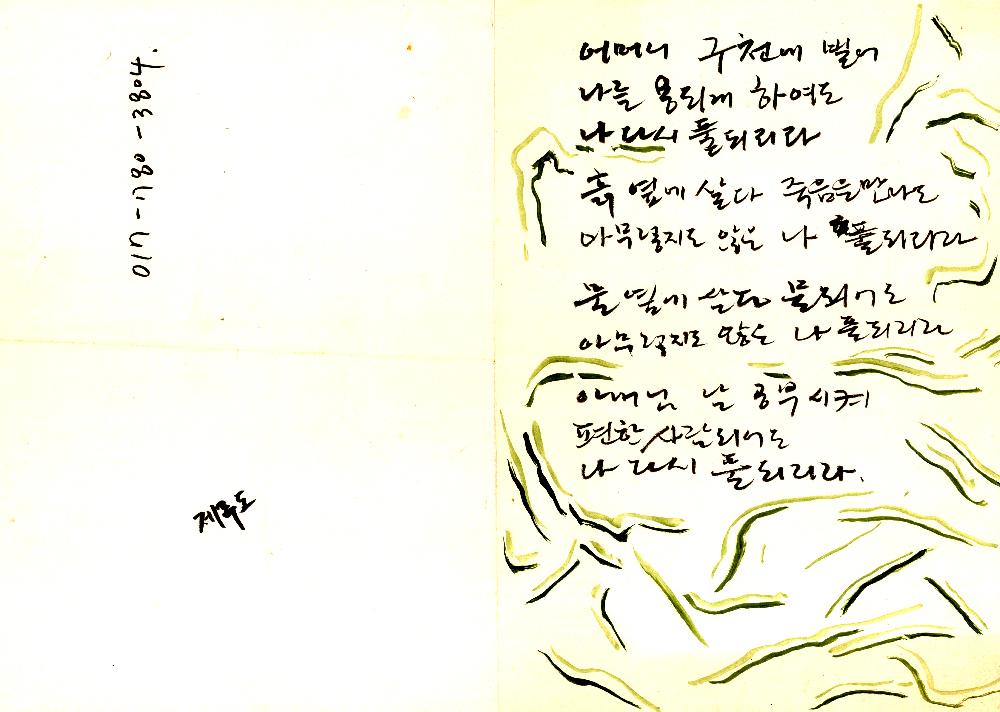 어머니 구천에 빌어
나를 용되게 하여도
나 다시 풀되리라
흙 옆에 살다 죽음을 만나도
아무렇지도 않은 나 풀되리라
물 옆에 살다 물되어도
아무렇지도 않은 나 풀되리라
아버님 날 공부시켜
편한 사람되어도
나 다시 풀되리라.
제주도